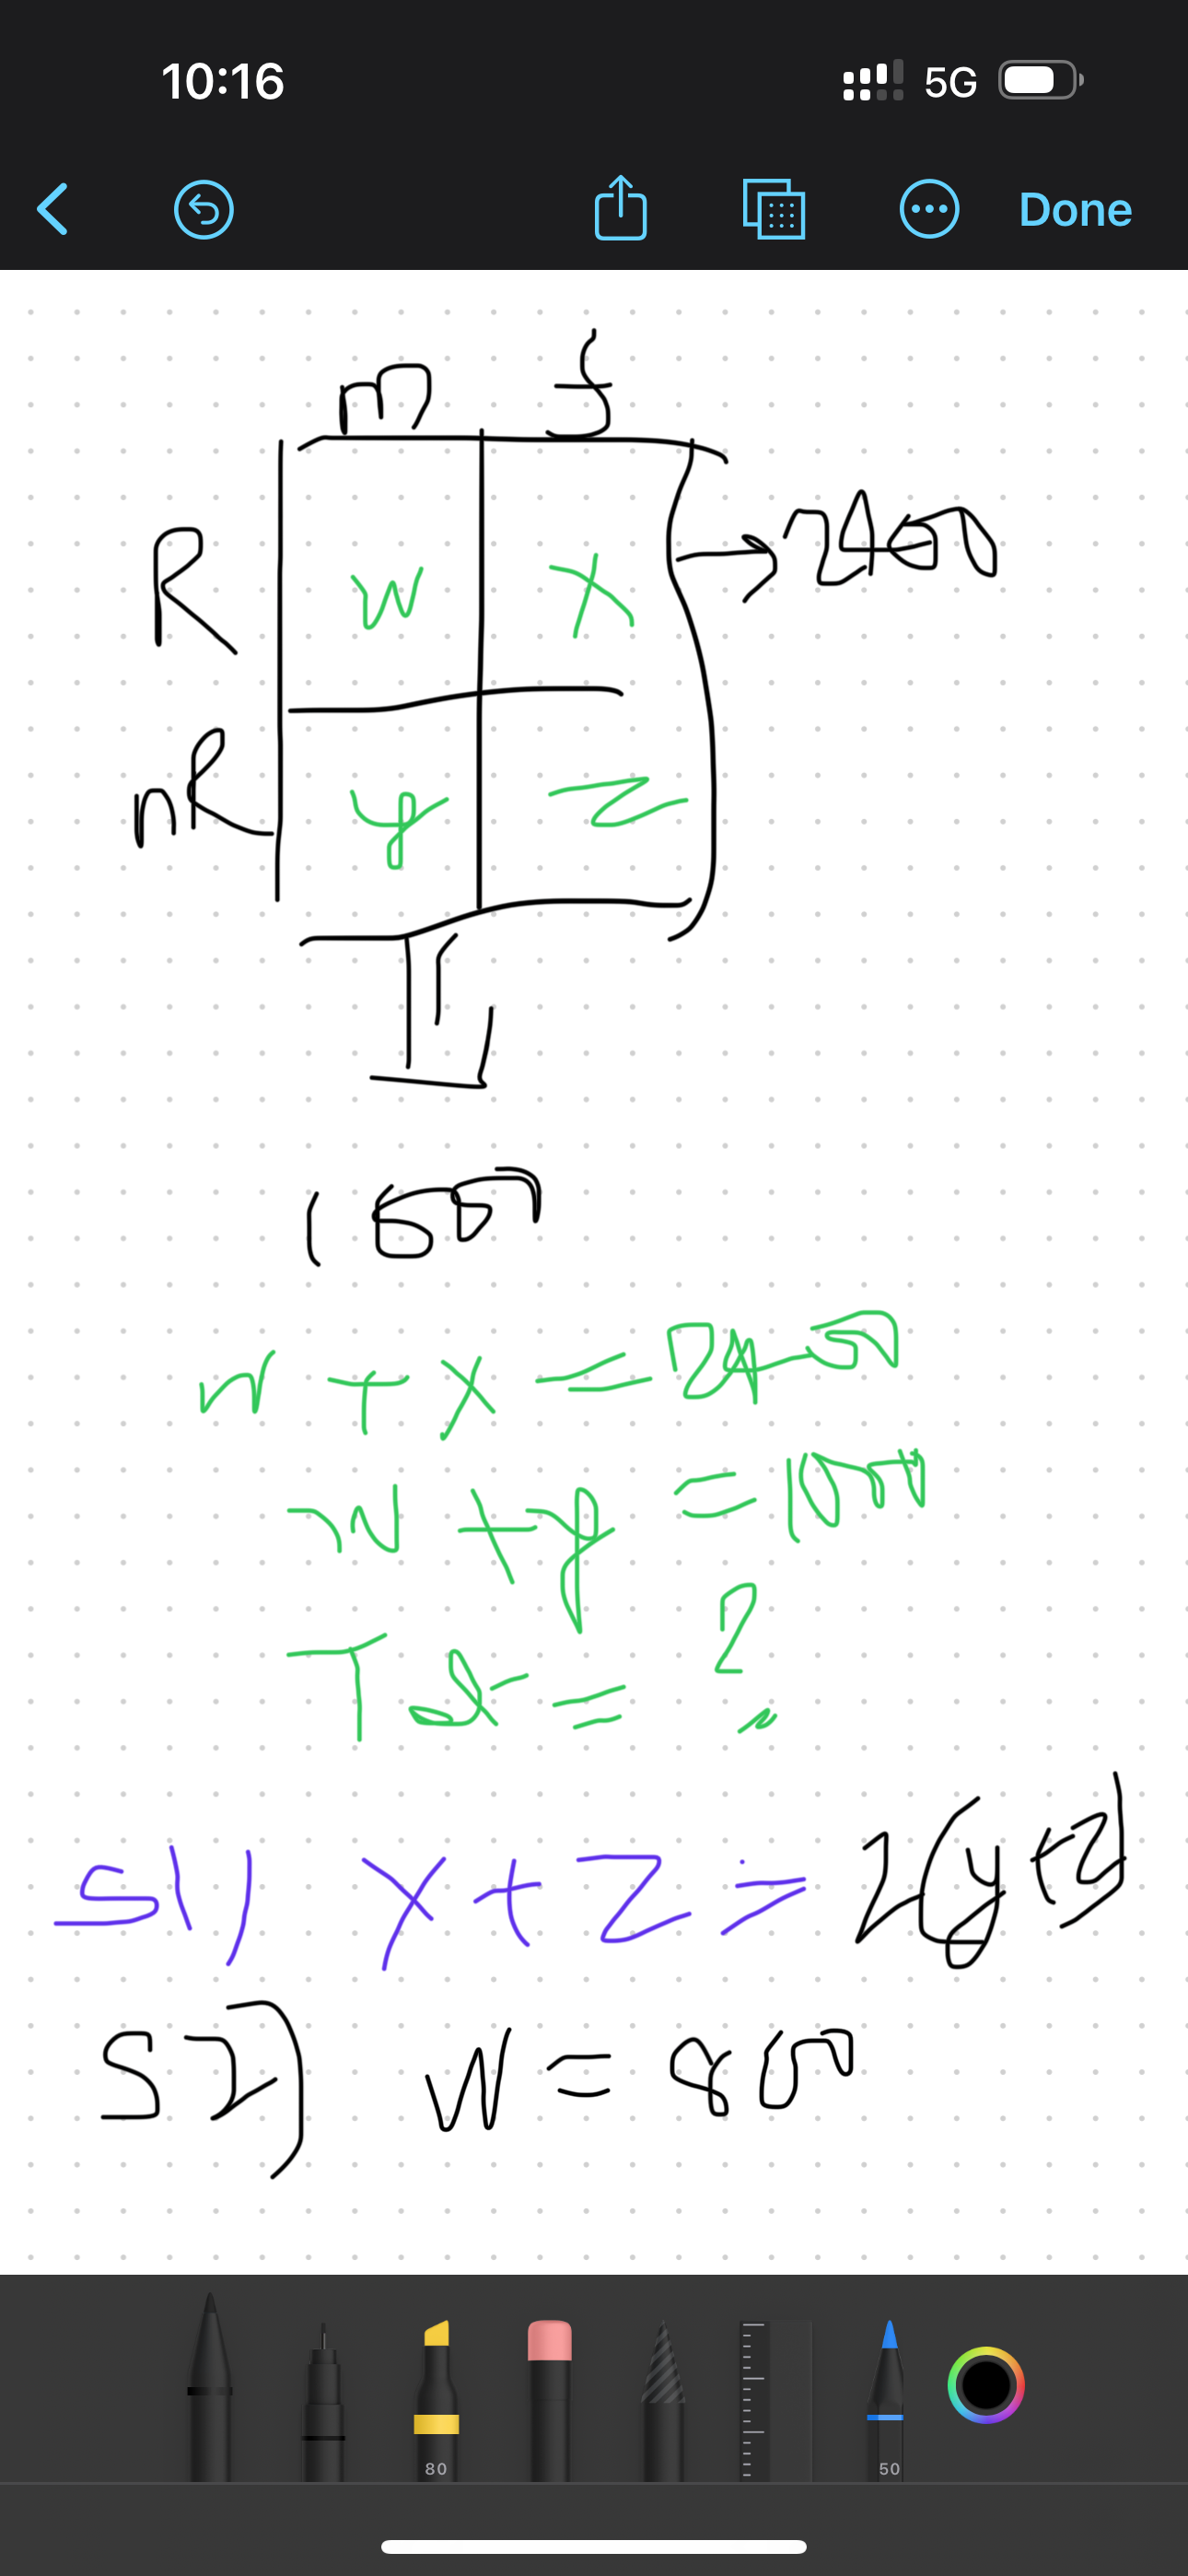 10:16
5G
Done
m f
R w x → 2400
nR y z
1600
w + x = 2400
w + y = 1000
Tot = ?
S1) x + z = 2(y+z)
S2) W = 800
80
50